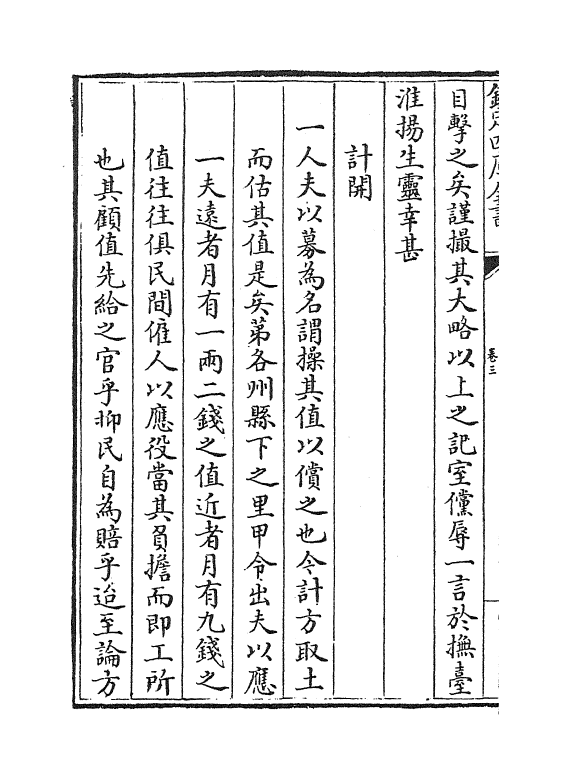 欽定四庫全書
卷三
目擊之矣謹撮其大略以上之記室儻辱一言於撫臺
淮揚生靈幸甚
計開
一人夫以募為名謂操其值以償之也今計方取土
而估其值是矣第各州縣下之里甲令出夫以應
一夫遠者月有一兩二錢之值近者月有九錢之
值往往俱民間僱人以應役當其負擔而即工所
也其顧值先給之官乎抑民自為賠乎迨至論方